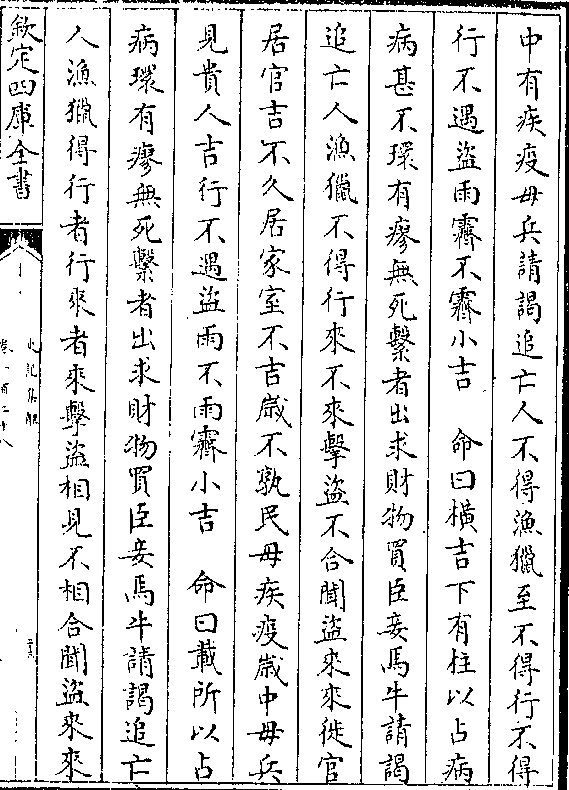 中有疾疫毋兵請謁追亡人不得漁獵至不得行不得
行不遇盜雨霽不霽小吉　命曰橫吉下有柱以占病
病甚不環有瘳無死繫者出求財物買臣妾馬牛請謁
追亡人漁獵不得行來不來擊盜不合聞盜來來徙官
居官吉不久居家室不吉歲不孰民毋疾疫歲中毋兵
見貴人吉行不遇盜雨不雨霽小吉　命曰載所以占
病環有瘳無死繫者出求財物買臣妾馬牛請謁追亡
人漁獵得行者行來者來擊盜相見不相合聞盜來來
欽定四庫全書
史記集解
卷一百二十八